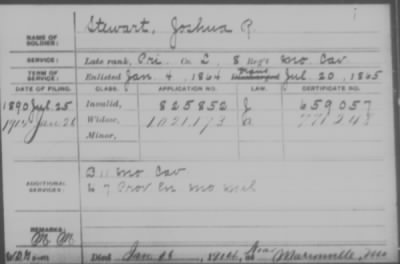 NAME OF SOLDIER: Stewart, Joshua P.
SERVICE: Late rank, Pri. Co. C, 8 Reg't Mo. Cav
TERM OF SERVICE: Enlisted Jan. 4, 1864 Trans Discharged Jul. 20, 1865
DATE OF FILING. CLASS. APPLICATION NO. LAW. CERTIFICATE NO.
1890 Jul. 25 Invalid, 825852 J 659057
Jan 26 Widow, 1.021.173 771243
Minor,
ADDITIONAL SERVICES: D 11 Mo Cav
67 Prov En Mo Mil
REMARKS:
Died Jan. near Marionville, Mo